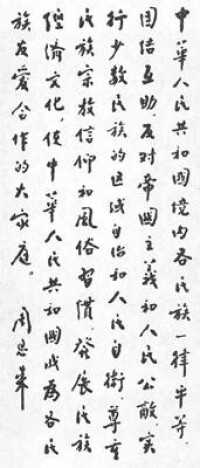 中華人民共和國境内各民族一律平等，
团结互助，反对帝國主義和人民公敵，实
行少数民族的区域自治和人民自衛，尊重
民族宗教信仰和風俗習慣，發展民族
經濟文化，使中華人民共和國成為各民
族友爱合作的大家庭。
周恩來